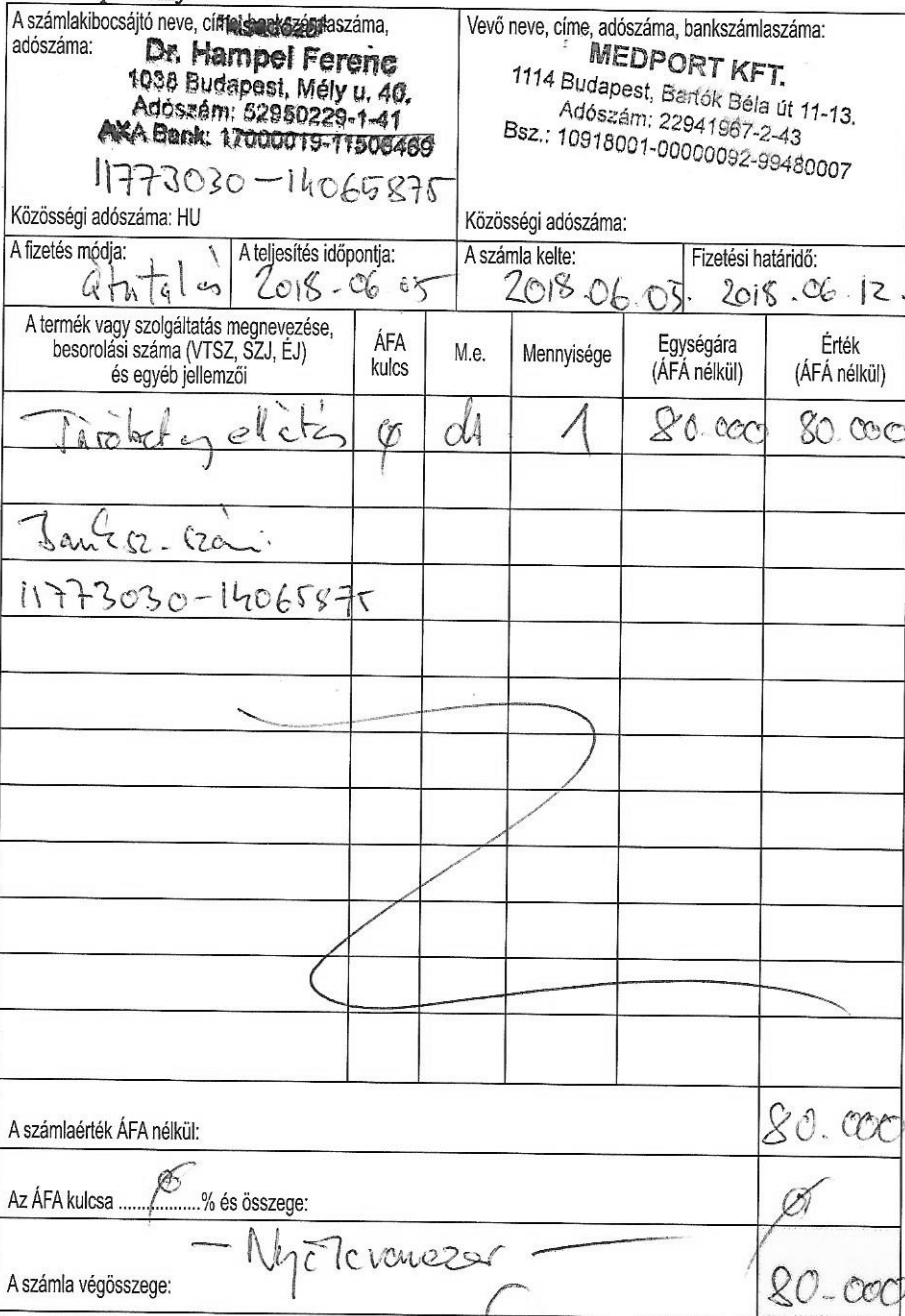 A számlakibocsájtó neve, címe, bankszámlaszáma,
adószáma:
Kisadózó
Dr. Hampel Ferenc
1038 Budapest, Mély u. 40.
Adószám: 52950229-1-41
AXA Bank: 17000019-11506469
11773030-14065875
Közösségi adószáma: HU
Vevő neve, címe, adószáma, bankszámlaszáma:
MEDPORT KFT.
1114 Budapest, Bartók Béla út 11-13.
Adószám: 22941967-2-43
Bsz.: 10918001-00000092-99480007
Közösségi adószáma:
A fizetés módja: átutalás
A teljesítés időpontja: 2018-06 05
A számla kelte: 2018.06.05.
Fizetési határidő: 2018.06.12.
A termék vagy szolgáltatás megnevezése,
besorolási száma (VTSZ, SZJ, ÉJ)
és egyéb jellemzői
ÁFA
kulcs
M.e.
Mennyisége
Egységára
(ÁFA nélkül)
Érték
(ÁFA nélkül)
Járóbeteg ellátás ø db 1 80.000 80.000
Banksz. szám:
11773030-14065875
A számlaérték ÁFA nélkül: 80.000
Az ÁFA kulcsa ø % és összege: ø
- Nyolcvanezer -
A számla végösszege: 80-000